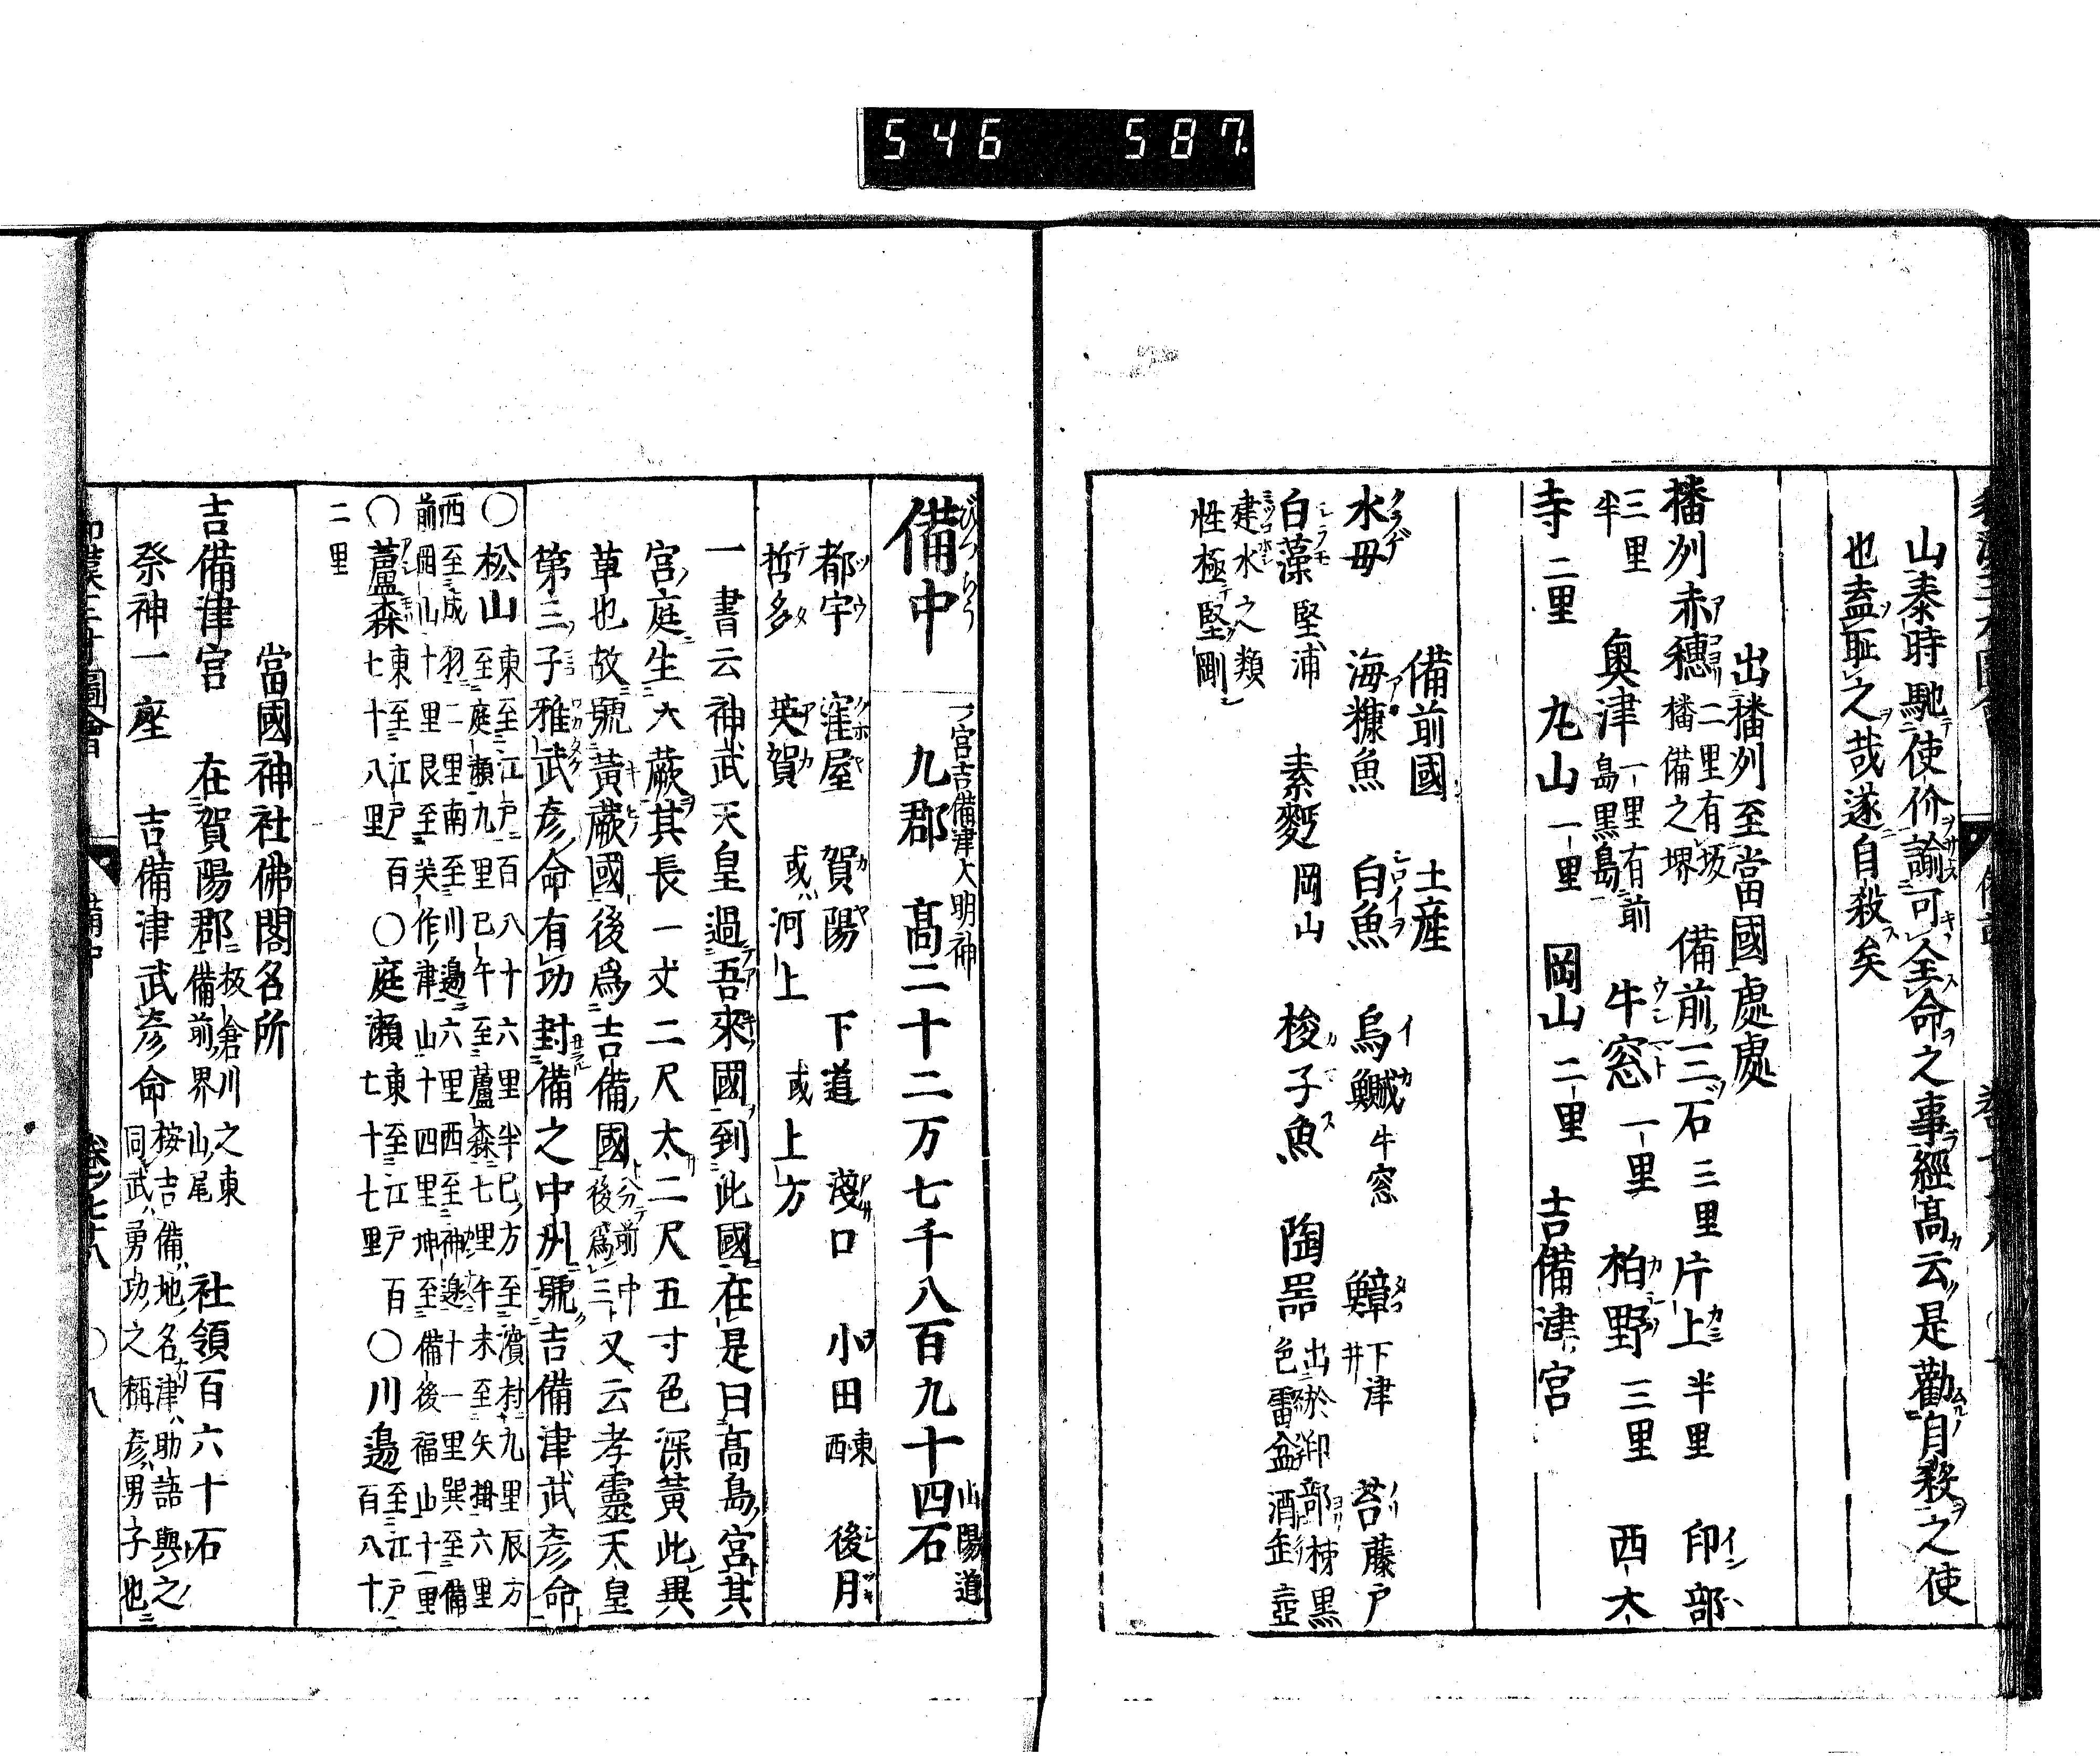 546 587.
山泰時馳使价諭可全命之事經高云是勸自殺之使
也盍恥之哉遂自殺矣
出播刕至當國處處
播刕赤穗 二里有坂播備之堺 備前三石 三里 片上 半里 印部
三里半 奥津 一里有前島黒島 牛窓 一里 柏野 三里 西大
寺 二里 九山 一里 岡山 二里 吉備津宮
備前國 土産
水母 海糠魚 白魚 烏鰂 牛窓 鱆 下津井 苔 藤戸
白藻 堅浦 素麪 岡山 梭子魚 陶器 出於印部村黒色雷盆酒壺
建水之類
性極堅剛
備中 一宮吉備津大明神 九郡 髙二十二万七千八百九十四石 山陽道
都宇 窪屋 賀陽 下道 淺口 小田 東西 後月
哲多 英賀 或河上 或上方
一書云神武天皇過吾來國到此國在是曰髙島宮其
宮庭生大蕨其長一丈二尺太二尺五寸色深黃此異
草也故號黃蕨國後爲吉備國 後爲三 分前中 又云孝靈天皇
第三子雅武彦命有功封備之中刕號吉備津武彦命
○松山 東至江戸百八十六里半巳方至濱村九里辰方
至庭瀬九里巳午至蘆森七里午未至矢掛六里
西至成羽二里南至川邉六里西至神邉十一里巽至備
前岡山十里艮至美作津山十四里坤至備後福山十一里
○蘆森 東至江戸百七十八里 ○庭瀬 東至江戸百七十七里 ○川邉 至江戸百八十
二里
當國神社佛閣名所
吉備津宮 在賀陽郡 板倉川之東備前界山尾 社領百六十石
祭神一座 吉備津武彦命 桉吉備地名津助語與之同武勇功之稱彦男子也
備中 卷ノ七十八 ○ 八